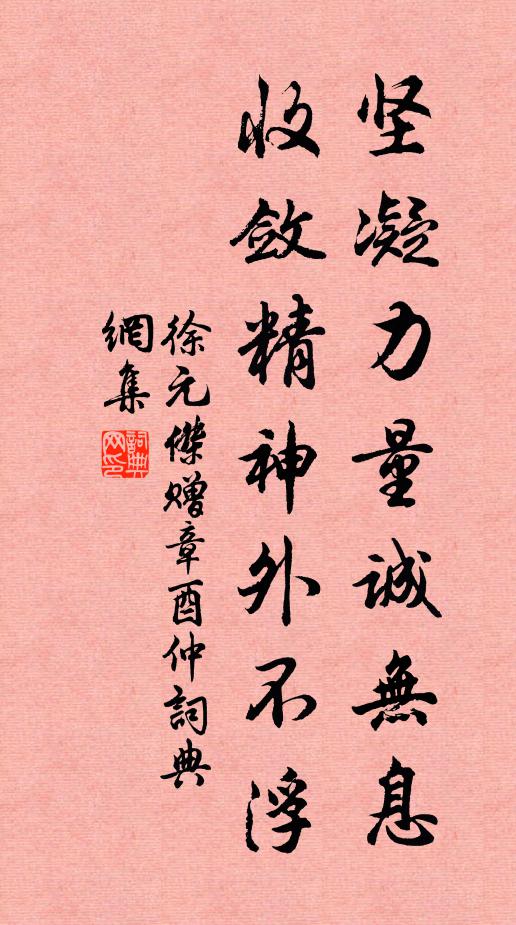 坚凝力量誠無息
收斂精神外不浮
徐元傑赠章酉仲詞典
網集
詞典網印